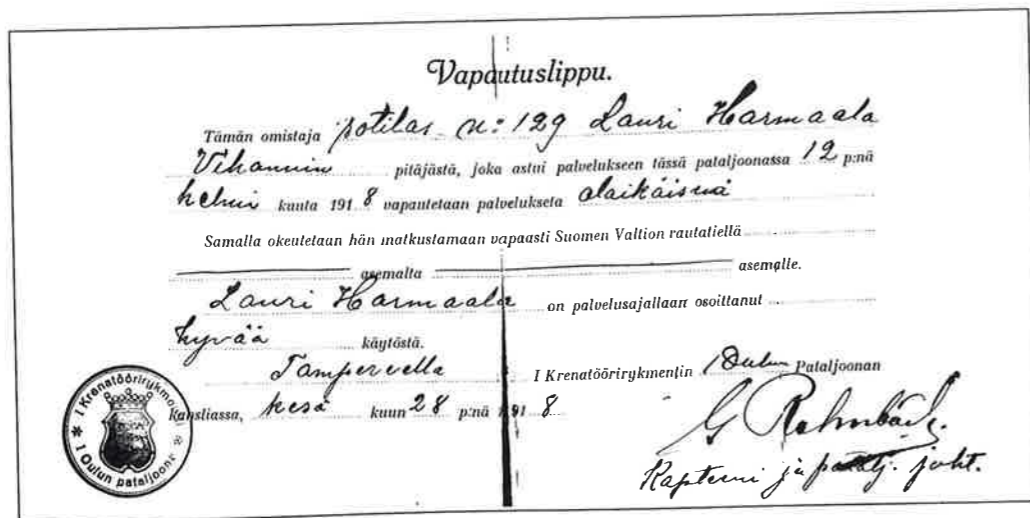 Vapautuslippu.
Tämän omistaja potilas n:129 Lauri Harmaala
Vihannin pitäjästä, joka astui palvelukseen tässä pataljoonassa 12 p:nä
helmi kuuta 1918 vapautetaan palvelukseta alaikäisenä
Samalla okeutetaan hän matkustamaan vapaasti Suomen Valtion rautatiellä
asemalta asemalle.
Lauri Harmaala on palvelusajallaan osoittanut
hyvää käytöstä.
Tampereella I Krenatöörirykmentin I Oulun Pataljoonan
Kansliassa, kesä kuun 28 p:nä 1918.
G
Kapteeni ja patalj. joht.
* I Krenatöörirykmentti * I Oulun pataljoona